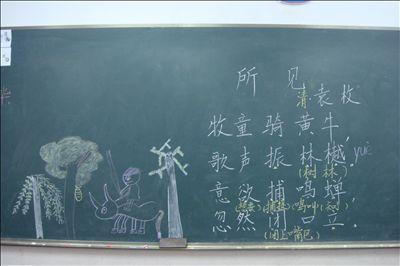 所 见
清·袁枚
牧童 骑 黄 牛，
歌声 振 林 樾。yuè
(树林)
意欲 捕 鸣 蝉，
(鸣叫)(知了)
忽然 闭 口 立。
(闭上嘴巴)